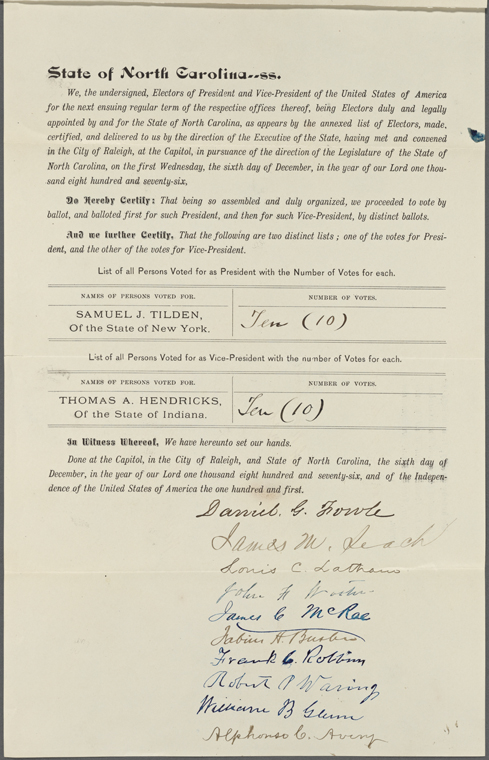 State of North Carolina--ss.
We, the undersigned, Electors of President and Vice-President of the United States of America
for the next ensuing regular term of the respective offices thereof, being Electors duly and legally
appointed by and for the State of North Carolina, as appears by the annexed list of Electors, made,
certified, and delivered to us by the direction of the Executive of the State, having met and convened
in the City of Raleigh, at the Capitol, in pursuance of the direction of the Legislature of the State of
North Carolina, on the first Wednesday, the sixth day of December, in the year of our Lord one thou-
sand eight hundred and seventy-six,
Do Hereby Certify: That being so assembled and duly organized, we proceeded to vote by
ballot, and balloted first for such President, and then for such Vice-President, by distinct ballots.
And we further Certify, That the following are two distinct lists ; one of the votes for Presi-
dent, and the other of the votes for Vice-President.
List of all Persons Voted for as President with the Number of Votes for each.
NAMES OF PERSONS VOTED FOR. NUMBER OF VOTES.
SAMUEL J. TILDEN, Ten (10)
Of the State of New York.
List of all Persons Voted for as Vice-President with the number of Votes for each.
NAMES OF PERSONS VOTED FOR. NUMBER OF VOTES.
THOMAS A. HENDRICKS, Ten (10)
Of the State of Indiana.
In Witness Whereof, We have hereunto set our hands.
Done at the Capitol, in the City of Raleigh, and State of North Carolina, the sixth day of
December, in the year of our Lord one thousand eight hundred and seventy-six, and of the Indepen-
dence of the United States of America the one hundred and first.
Daniel. G. Fowle
James M. Leach
Louis C. Latham
John F
James C McRae
Fabius H. Busbee
Frank C. Robbins
Robert P Waring
William B Glenn
Alphonso C. Avery